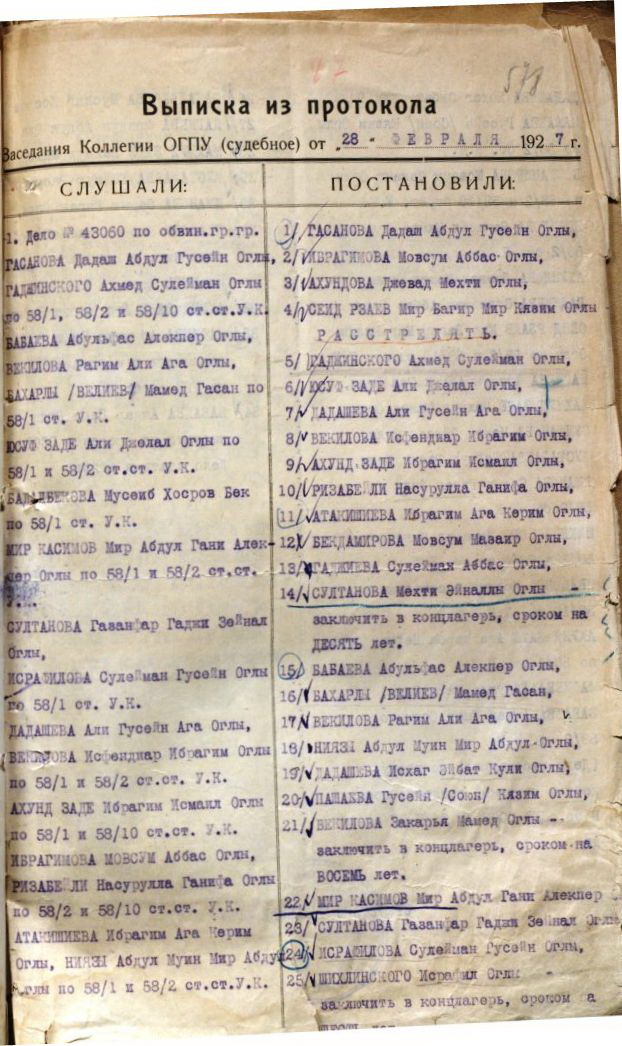 578
Выписка из протокола
Заседания Коллегии ОГПУ (судебное) от „28 " ФЕВРАЛЯ 1927 г.
СЛУШАЛИ:
1. Дело № 43060 по обвин.гр.гр.
ГАСАНОВА Дадаш Абдул Гусейн Оглы,
ГАДЖИНСКОГО Ахмед Сулейман Оглы
по 58/1, 58/2 и 58/10 ст.ст.У.К.
БАБАЕВА Абульфас Алекпер Оглы,
ВЕКИЛОВА Рагим Али Ага Оглы,
БАХАРЛЫ /ВЕЛИЕВ/ Мамед Гасан по
58/1 ст. У.К.
ЮСУФ ЗАДЕ Али Джелал Оглы по
58/1 и 58/2 ст.ст. У.К.
Мусеиб Хосров Бек
по 58/1 ст. У.К.
МИР КАСИМОВ Мир Абдул Гани Алек-
пер Оглы по 58/1 и 58/2 ст.ст.
У.К.
СУЛТАНОВА Газанфар Гаджи Зейнал
Оглы,
ИСРАФИЛОВА Сулейман Гусейн Оглы
по 58/1 ст. У.К.
ДАДАШЕВА Али Гусейн Ага Оглы,
ВЕКИЛОВА Исфендиар Ибрагим Оглы
по 58/1 и 58/2 ст.ст. У.К.
АХУНД ЗАДЕ Ибрагим Исмаил Оглы
по 58/1 и 58/10 ст.ст. У.К.
ИБРАГИМОВА МОВСУМ Аббас Оглы,
РИЗАБЕЙЛИ Насурулла Ганифа Оглы
по 58/2 и 58/10 ст.ст. У.К.
АТАКИШИЕВА Ибрагим Ага Керим
Оглы, НИЯЗЫ Абдул Муин Мир Абдул
Оглы по 58/1 и 58/2 ст.ст.У.К.
ПОСТАНОВИЛИ:
1/ ГАСАНОВА Дадаш Абдул Гусейн Оглы,
2/ ИБРАГИМОВА Мовсум Аббас Оглы,
3/ АХУНДОВА Джевад Мехти Оглы,
4/ СЕИД РЗАЕВ Мир Багир Мир Кязим Оглы
РАССТРЕЛЯТЬ.
5/ ГАДЖИНСКОГО Ахмед Сулейман Оглы,
6/ ЮСУФ ЗАДЕ Али Джелал Оглы,
7/ ДАДАШЕВА Али Гусейн Ага Оглы,
8/ ВЕКИЛОВА Исфендиар Ибрагим Оглы,
9/ АХУНД ЗАДЕ Ибрагим Исмаил Оглы,
10/ РИЗАБЕЙЛИ Насурулла Ганифа Оглы,
11/ АТАКИШИЕВА Ибрагим Ага Керим Оглы,
12/ БЕНДАМИРОВА Мовсум Мазаир Оглы,
13/ ГАДЖИЕВА Сулейман Аббас Оглы,
14/ СУЛТАНОВА Мехти Эйналлы Оглы -
заключить в концлагерь, сроком на
ДЕСЯТЬ лет.
15/ БАБАЕВА Абульфас Алекпер Оглы,
16/ БАХАРЛЫ /ВЕЛИЕВ/ Мамед Гасан,
17/ ВЕКИЛОВА Рагим Али Ага Оглы,
18/ НИЯЗЫ Абдул Муин Мир Абдул-Оглы,
19/ ДАДАШЕВА Исхаг Эйбат Кули Оглы,
20/ ПАШАЕВА Гусейн /Союн/ Кязим Оглы,
21/ ВЕКИЛОВА Закарья Мамед Оглы -
заключить в концлагерь, сроком на
ВОСЕМЬ лет.
22/ МИР КАСИМОВ Мир Абдул Гани Алекпер О
23/ СУЛТАНОВА Газанфар Гаджи Зейнал Оглы
24/ ИСРАФИЛОВА Сулейман Гусейн Оглы,
25/ ШИХЛИНСКОГО Исрафил Оглы -
заключить в концлагерь, сроком а